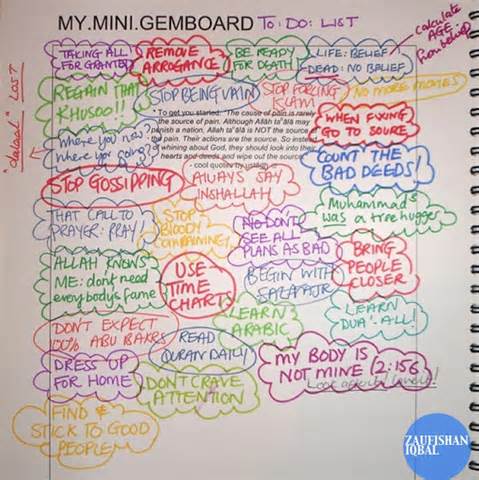 MY.MINI.GEMBOARD TO: DO: LIST
CALCULATE
AGE:
TAKING ALL
FOR GRANTED
REMOVE
ARROGANCE
BE READY
FOR DEATH
LIFE: BELIEF
DEAD: NO BELIEF
REGAIN THAT
KHUSOO!!
STOP BEING VAIN
STOP FORCING
ISLAM
NO MORE MOVIES
"dataad" LOST
To get you started: "The cause of pain is rarely
the source of pain. Although Allāh ta'ālā may
punish a nation, Allah ta'ālā is NOT the source of
the pain. Their actions are the source. So instead
of whining about God, they should look into their
hearts and deeds and wipe out the source."
- cool quote by
WHEN FIXING
GO TO SOURCE
where you now
where you going?
COUNT THE
BAD DEEDS!
STOP GOSSIPPING
ALWAYS SAY
INSHALLAH
Muhammads
was a tree hugger
THAT CALL TO
PRAYER: PRAY!
STOP
BLOODY
COMPLAINING
NO DONT
SEE ALL
PLANS AS BAD
BRING
PEOPLE
CLOSER
ALLAH KNOWS
ME: don't need
everybodys fame
USE
TIME
CHART
BEGIN WITH
SALAAJR
LEARN
DUA'. ALL!
LEARN
ARABIC
DON'T EXPECT
100% ABU BAKRS
READ
QURAN DAILY
MY BODY IS
NOT MINE (2:156)
Look after it
DRESS UP
FOR HOME
DON'T CRAVE
ATTENTION
FIND &
STICK TO GOOD
PEOPLE
ZAUFISHAN
IQBAL